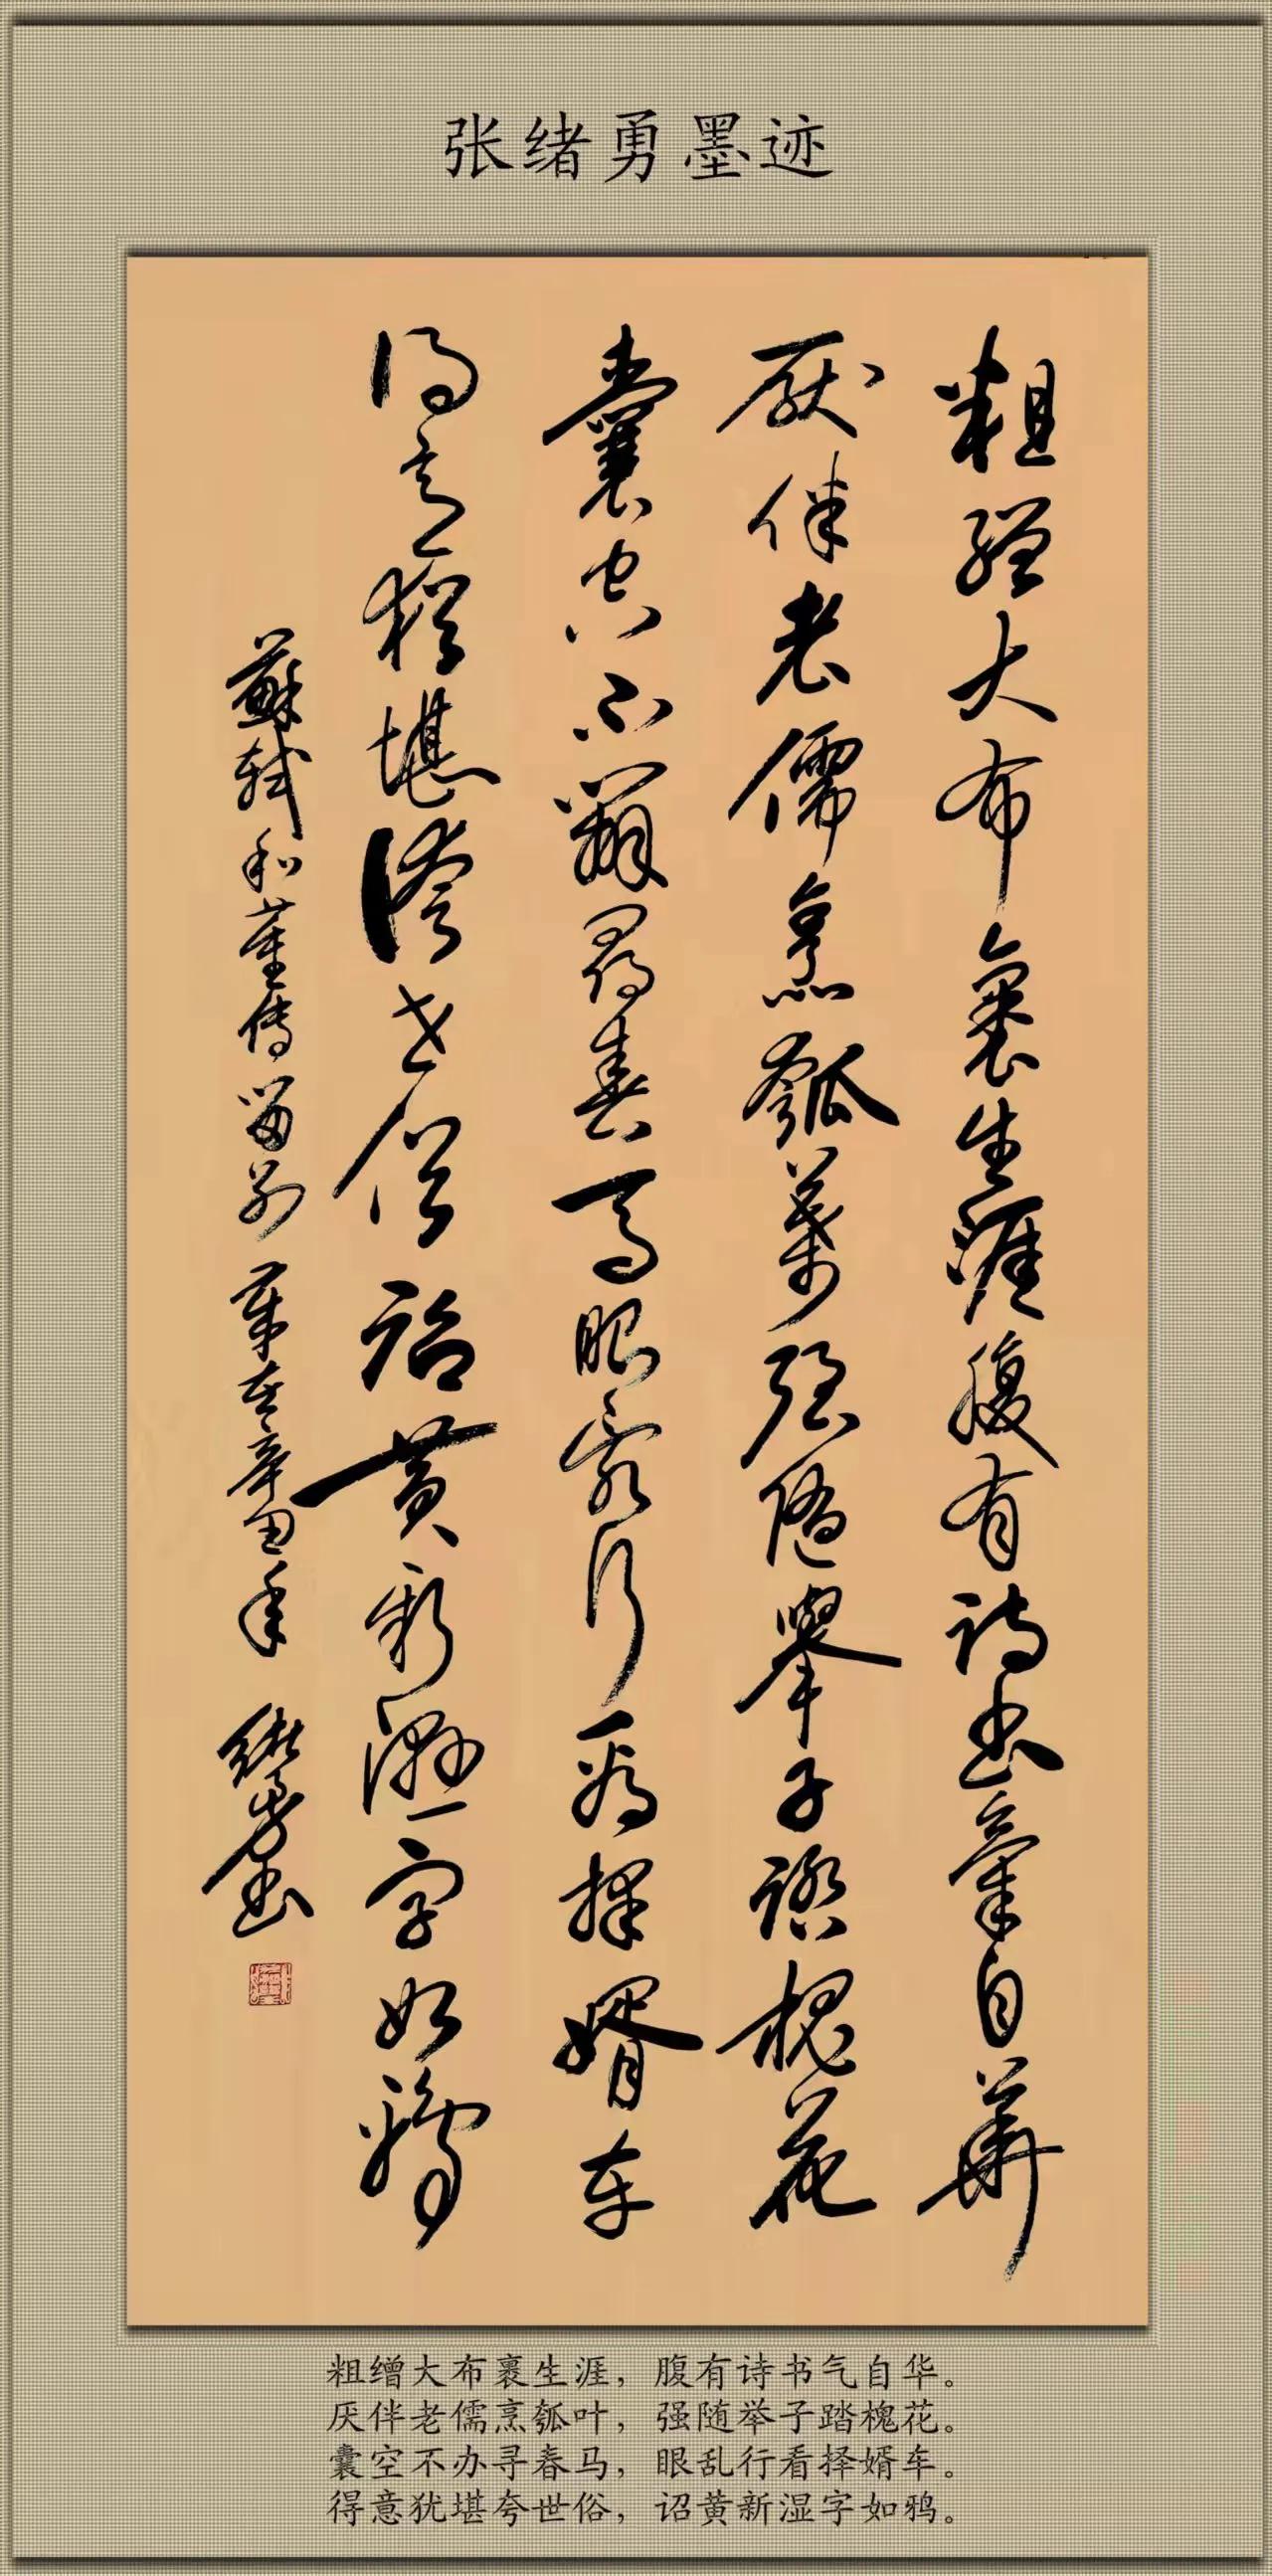 张绪勇墨迹
粗缯大布裹生涯腹有诗书气自华
厌伴老儒烹瓠叶强随举子踏槐花
囊空不办寻春马眼乱行看择婿车
得意犹堪夸世俗诏黄新湿字如鸦
蘇轼和董传留别 岁在辛丑年 绪勇书
粗缯大布裹生涯，腹有诗书气自华。
厌伴老儒烹瓠叶，强随举子踏槐花。
囊空不办寻春马，眼乱行看择婿车。
得意犹堪夸世俗，诏黄新湿字如鸦。